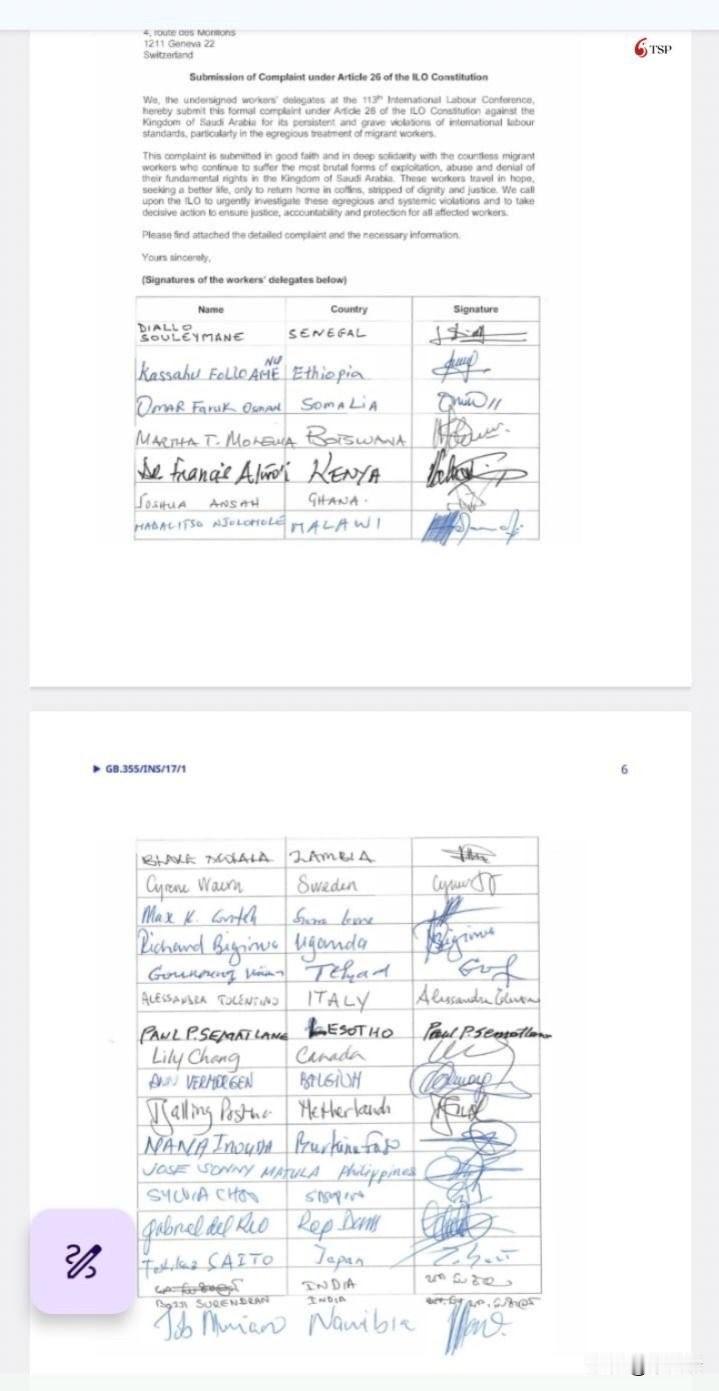 4, route des Morillons
TSP
1211 Geneva 22
Switzerland
Submission of Complaint under Article 26 of the ILO Constitution
We, the undersigned workers' delegates at the 113th International Labour Conference,
hereby submit this formal complaint under Article 26 of the ILO Constitution against the
Kingdom of Saudi Arabia for its persistent and grave violations of international labour
standards, particularly in the egregious treatment of migrant workers.
This complaint is submitted in good faith and in deep solidarity with the countless migrant
workers who continue to suffer the most brutal forms of exploitation, abuse and denial of
their fundamental rights in the Kingdom of Saudi Arabia. These workers travel in hope,
seeking a better life, only to return home in coffins, stripped of dignity and justice. We call
upon the ILO to urgently investigate these egregious and systemic violations and to take
decisive action to ensure justice, accountability and protection for all affected workers.
Please find attached the detailed complaint and the necessary information.
Yours sincerely,
(Signatures of the workers' delegates below)
Name Country Signature
DIALLO
SOULEYMANE SENEGAL
Kassahu FOLLO AME NU Ethiopia
OMAR Faruk Osman SOMALIA
MARTHA T. MOLEMA BOTSWANA
Francis KENYA
JOSHUA ANSAH GHANA.
MADALITSO NJOLOMOLE MALAWI
GB.355/INS/17/1 6
ZAMBIA
Cyrene Sweden
Max K.
Richard Bigirwa Uganda Bigirwa
Tchad
ALESSANDRA TOLENTINO ITALY Alessandra
PAUL P. SEMATLANE LESOTHO Paul P. Sematlane
Lily Chang Canada
ANN VERMORGEN BELGIUM
Tjalling Postma Netherlands
NANA Burkina Faso
JOSE SONNY MATULA Philippines
SYLVIA CHOO
gabriel del Rio Rep Dom
SAITO Japan
INDIA
SURENDRAN INDIA
Job Namibia